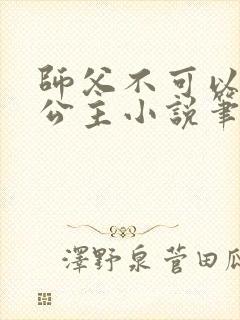 師父不可以
公主小說筆
澤野泉菅田